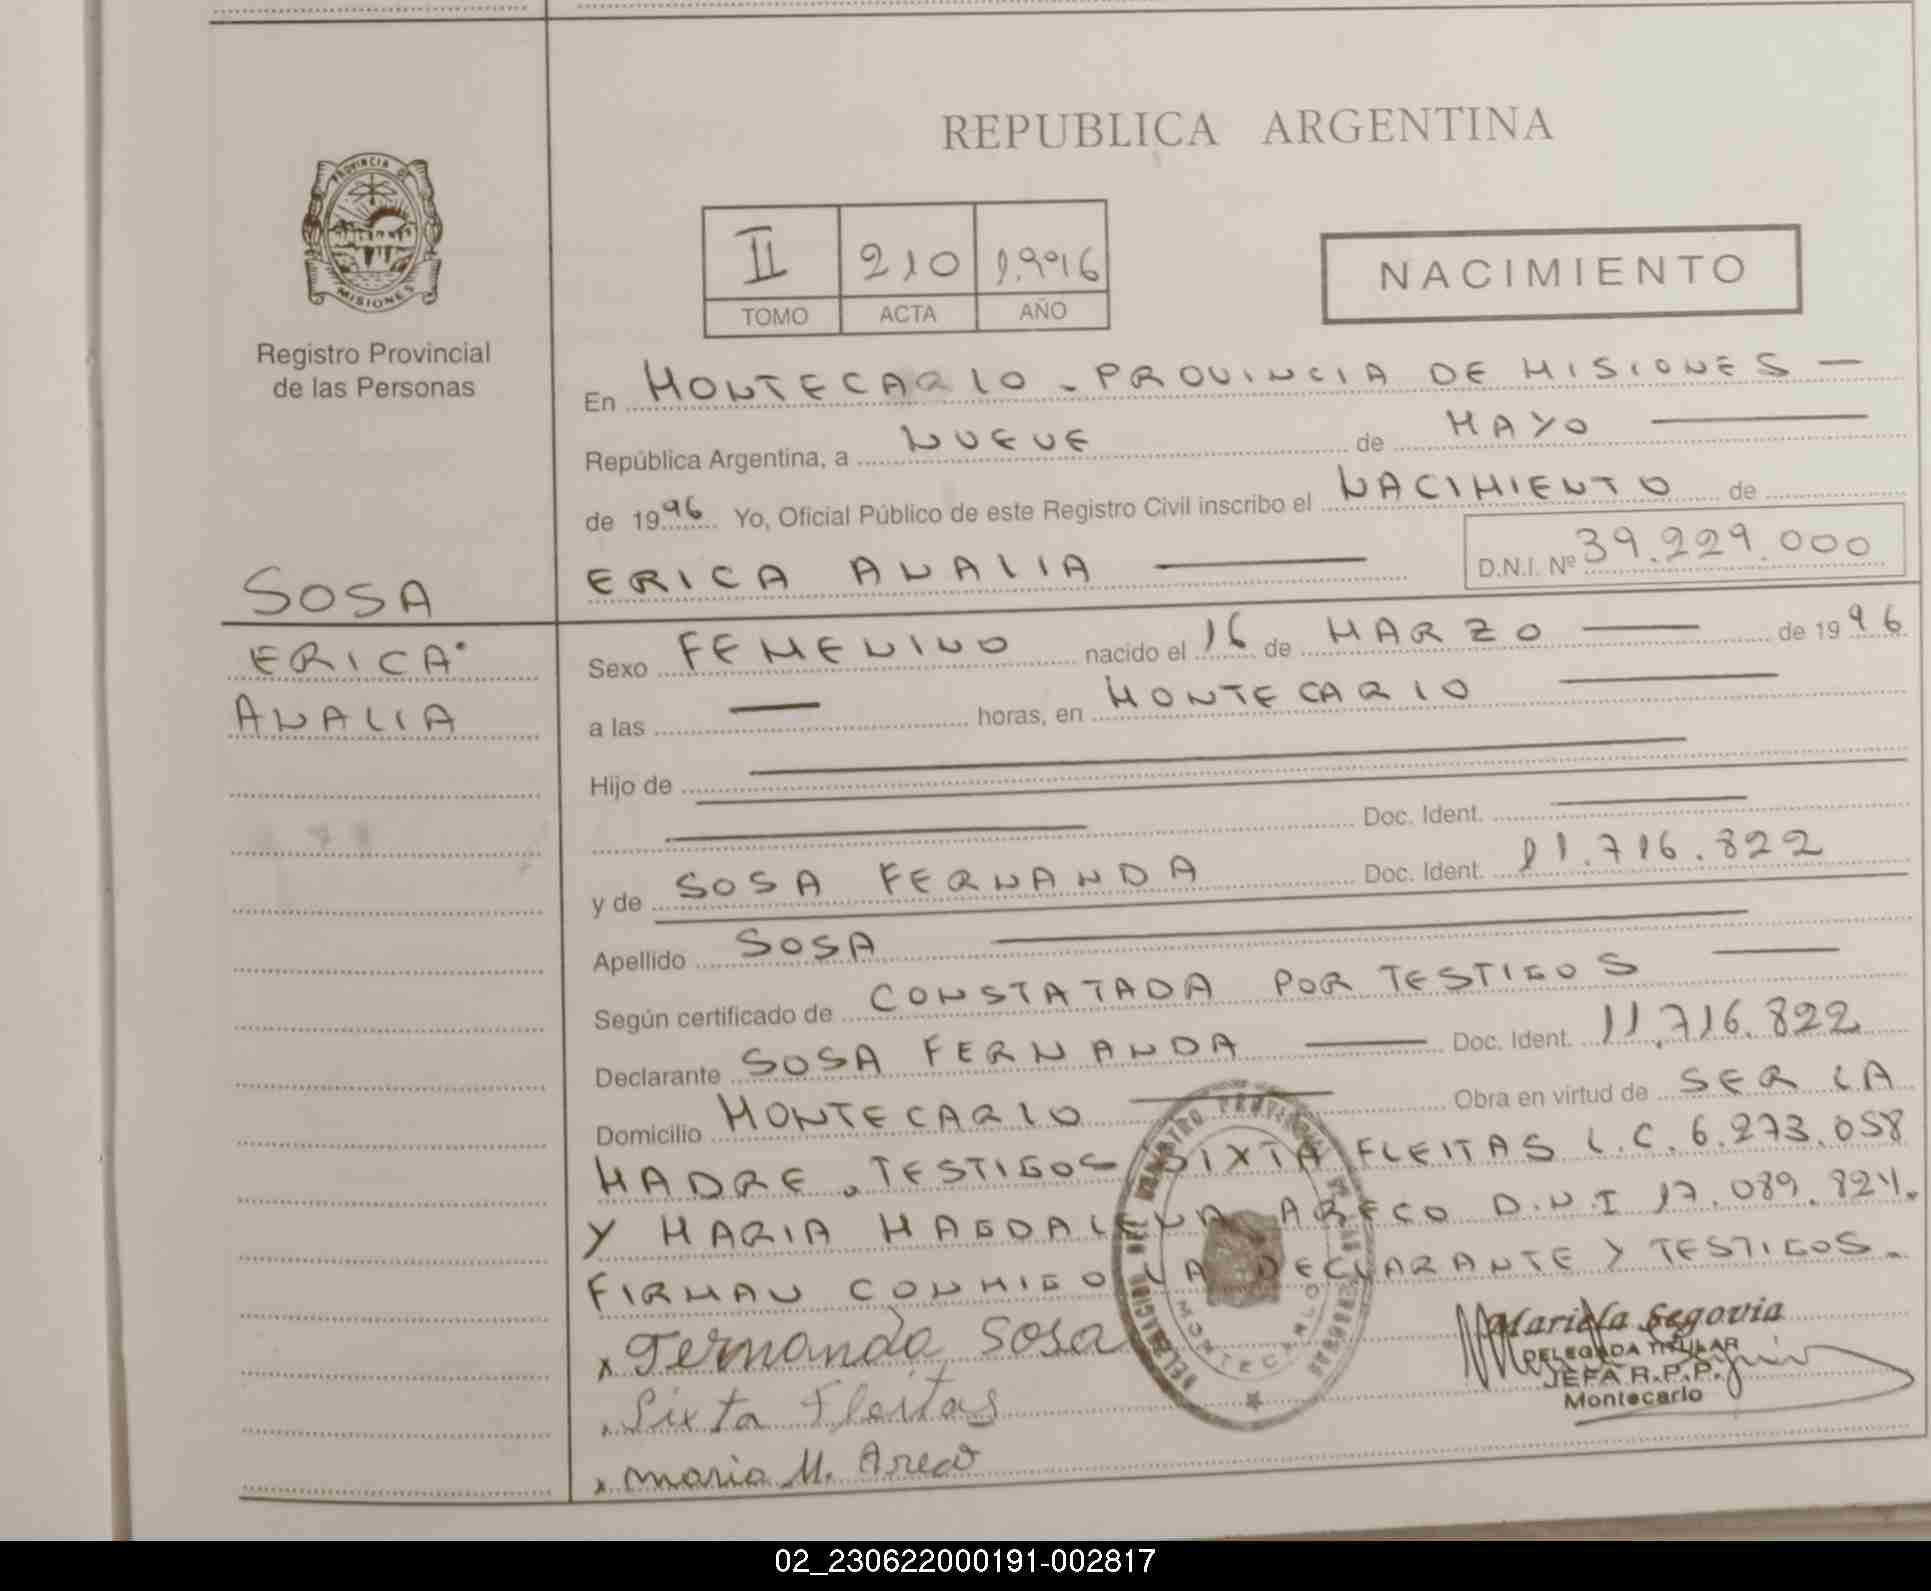 REPUBLICA ARGENTINA
PROVINCIA DE
MISIONES
Registro Provincial
de las Personas
II 210 1.996
TOMO ACTA AÑO
NACIMIENTO
En MONTECARLO - PROVINCIA DE MISIONES —
República Argentina, a NUEVE de MAYO —
de 1996 Yo, Oficial Público de este Registro Civil inscribo el NACIMIENTO de
ERICA ANALIA — D.N.I. Nº 39.229.000
SOSA
ERICA
ANALIA
Sexo FEMENINO nacido el 16 de MARZO — de 1996
a las — horas, en MONTECARLO —
Hijo de —
— Doc. Ident. —
y de SOSA FERNANDA Doc. Ident. 11.716.822
Apellido SOSA —
Según certificado de CONSTATADA POR TESTIGOS —
Declarante SOSA FERNANDA — Doc. Ident. 11.716.822
Domicilio MONTECARLO — Obra en virtud de SER LA
MADRE. TESTIGOS SIXTA FLEITAS L.C. 6.273.058
Y MARIA MAGDALENA ARECO D.N.I 17.089.824.
FIRMAN CONMIGO LA DECLARANTE Y TESTIGOS.
x Fernanda Sosa
Sixta Fleitas
x Maria M. Areco
MONTECARLO
Mariela Segovia
DELEGADA TITULAR
JEFA R.P.P.
Montecarlo
02_230622000191-002817